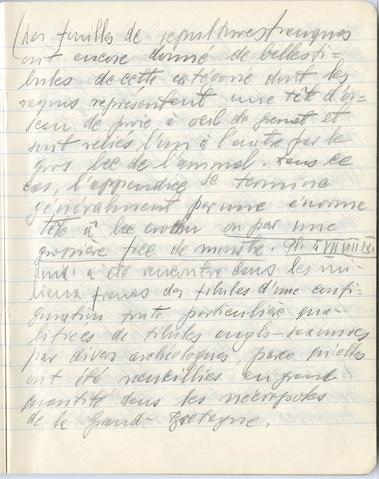 (Les fouilles de sépultures franques
ont encore donné de belles fi-
bules de cette catégorie dont les
rayons représentent une tête d'oi-
seau de proie à oeil de grenat et
sont reliés l'un à l'autre par le
gros bec de l'animal. Dans ce
cas, l'appendice se termine
généralement par une énorme
tête à bec crochu ou par une
grossière face de monstre. Pl.
a été rencontré dans les mi-
lieux francs des fibules d'une confi-
guration toute particulière qua-
lifiées de fibules anglo-saxonnes
par divers archéologues, parce qu'elles
ont été recueillies en grand
quantité dans les nécropoles
de la Grand-Bretagne.